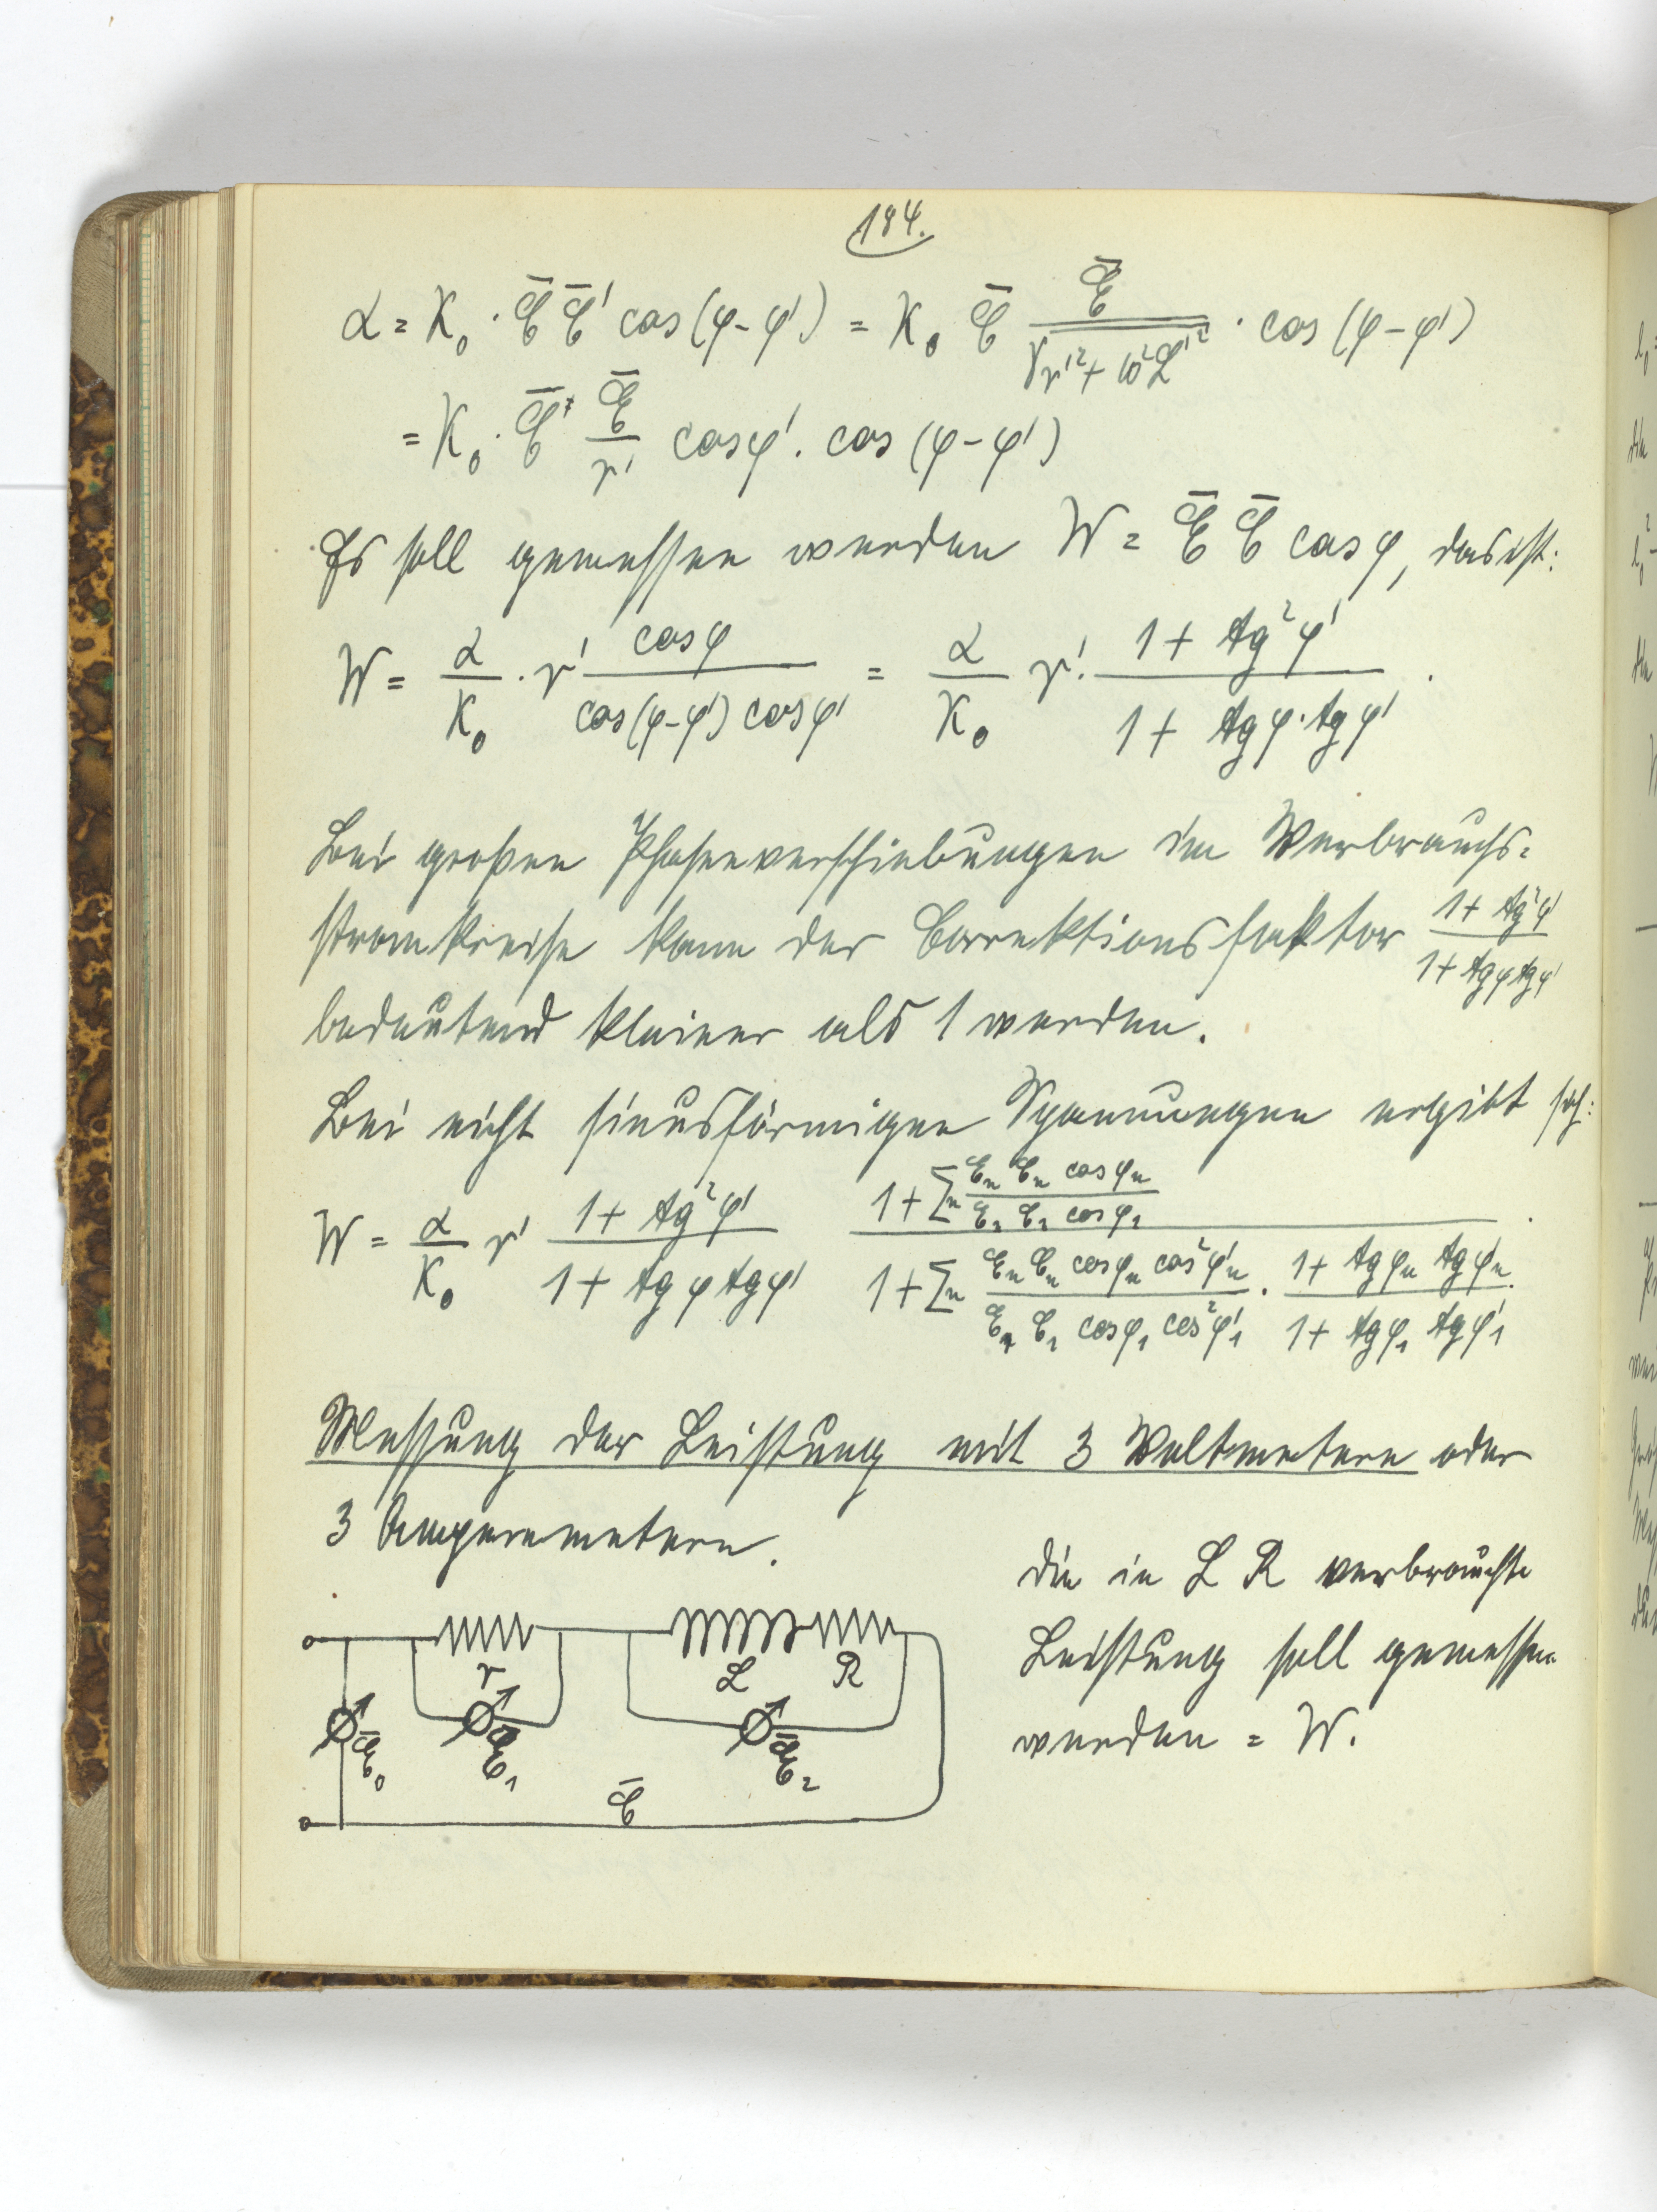 184.
α = K₀ · C̄ C̄' cos(φ-φ') = K₀ C̄ Ē/√(r'² + ω²L'²) · cos(φ-φ')
= K₀ · C̄ Ē/r' cosφ' . cos(φ-φ')
Es soll gemessen werden W = Ē C̄ cosφ, das ist:
W = α/K₀ · r' cosφ/(cos(φ-φ') cosφ') = α/K₀ r' · (1 + tg²φ')/(1 + tgφ·tgφ') .
Bei großen Phasenverschiebungen im Verbrauchs=
stromkreise kann der Correktionsfaktor (1 + tg²φ')/(1 + tgφ tgφ')
bedeutend kleiner als 1 werden.
Bei nicht sinusförmigen Spannungen ergibt sich:
W = α/K₀ r' (1 + tg²φ')/(1 + tgφ tgφ') (1 + Σₙ Eₙ Cₙ cosφₙ/(E₁ C₁ cosφ₁))/(1 + Σₙ Eₙ Cₙ cosφₙ cos²φ'ₙ/(E₁ C₁ cosφ₁ cos²φ'₁) · (1 + tgφₙ tgφ'ₙ)/(1 + tgφ₁ tgφ'₁)) .
Messung der Leistung mit 3 Voltmetern oder
3 Amperemetern.
die in L R verbrauchte
Leistung soll gemessen
werden = W.
r
L R
Ē₀ Ē₁ Ē₂
C̄